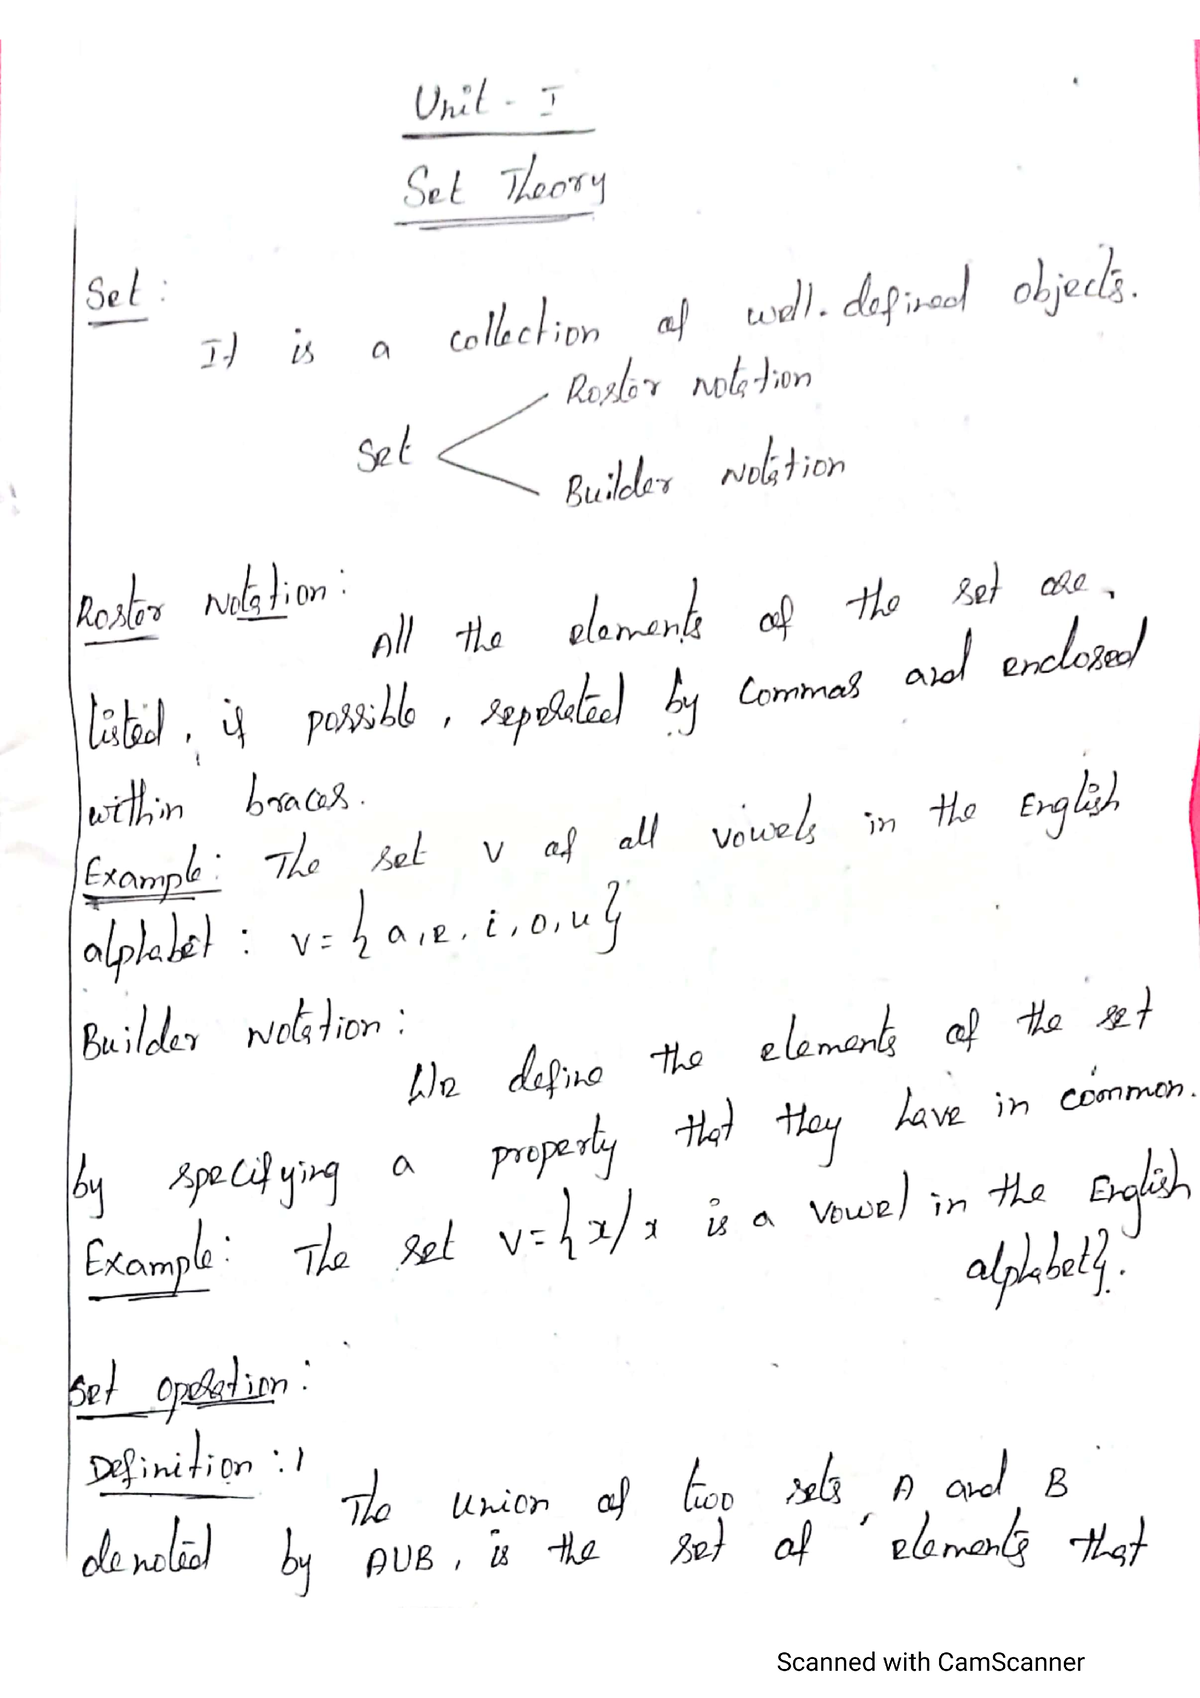 Unit - I
Set Theory
Set :
It is a collection of well-defined objects.
Roster notation
Set
Builder notation
Roster notation :
All the elements of the set are,
listed, if possible, seperated by commas and enclosed
within braces.
Example : The set V of all vowels in the English
alphabet : V = { a, e, i, o, u }
Builder notation :
We define the elements of the set
by specifying a property that they have in common.
Example : The set V = { x / x is a vowel in the English
alphabet }.
Set operation :
Definition : 1
The union of two sets A and B
denoted by AUB, is the set of elements that
Scanned with CamScanner